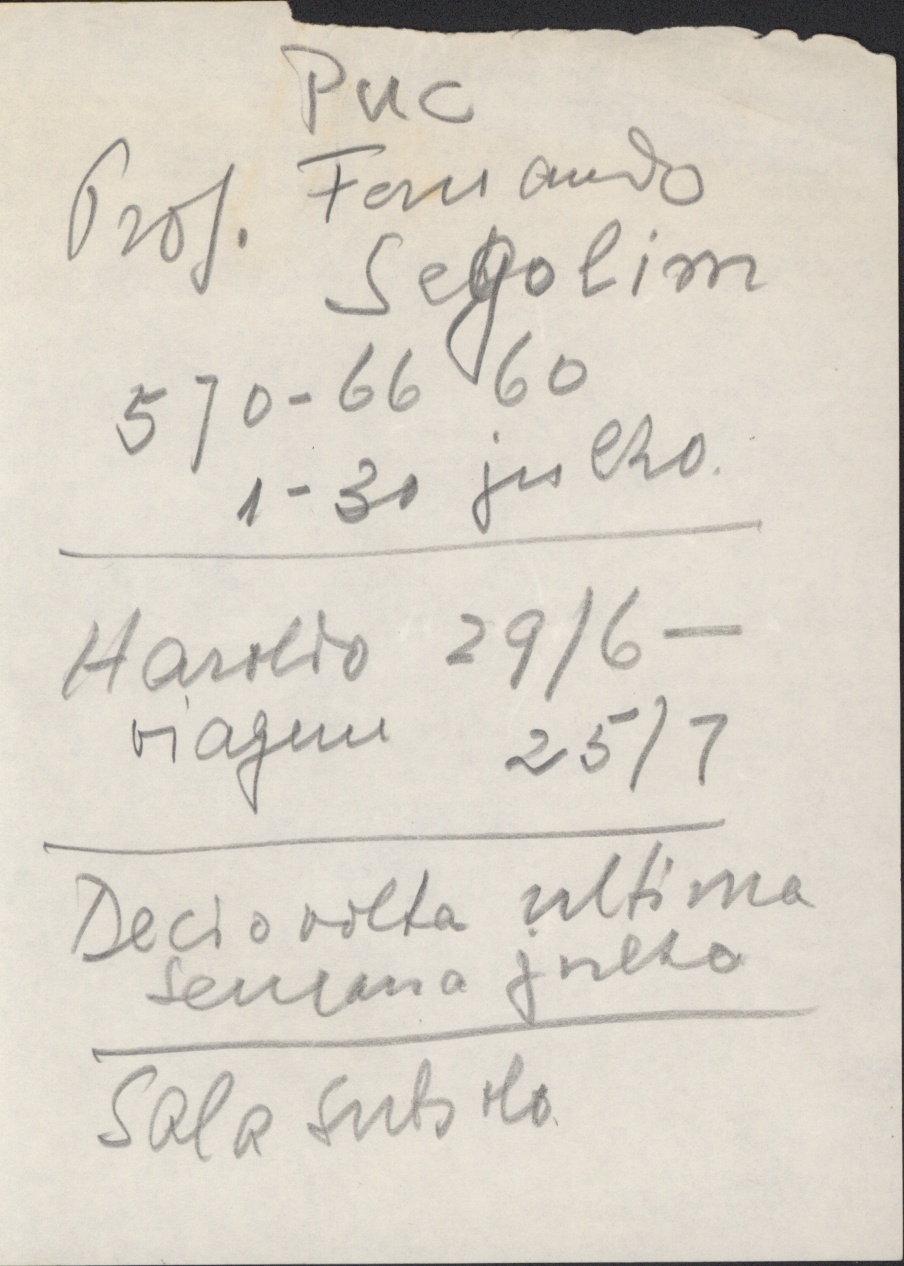 PUC
Prof. Fernando
Segolim
570-66 60
1-30 julho.
Haroldo 29/6 —
viagem 25/7
Decio volta ultima
semana julho
Sala subsolo